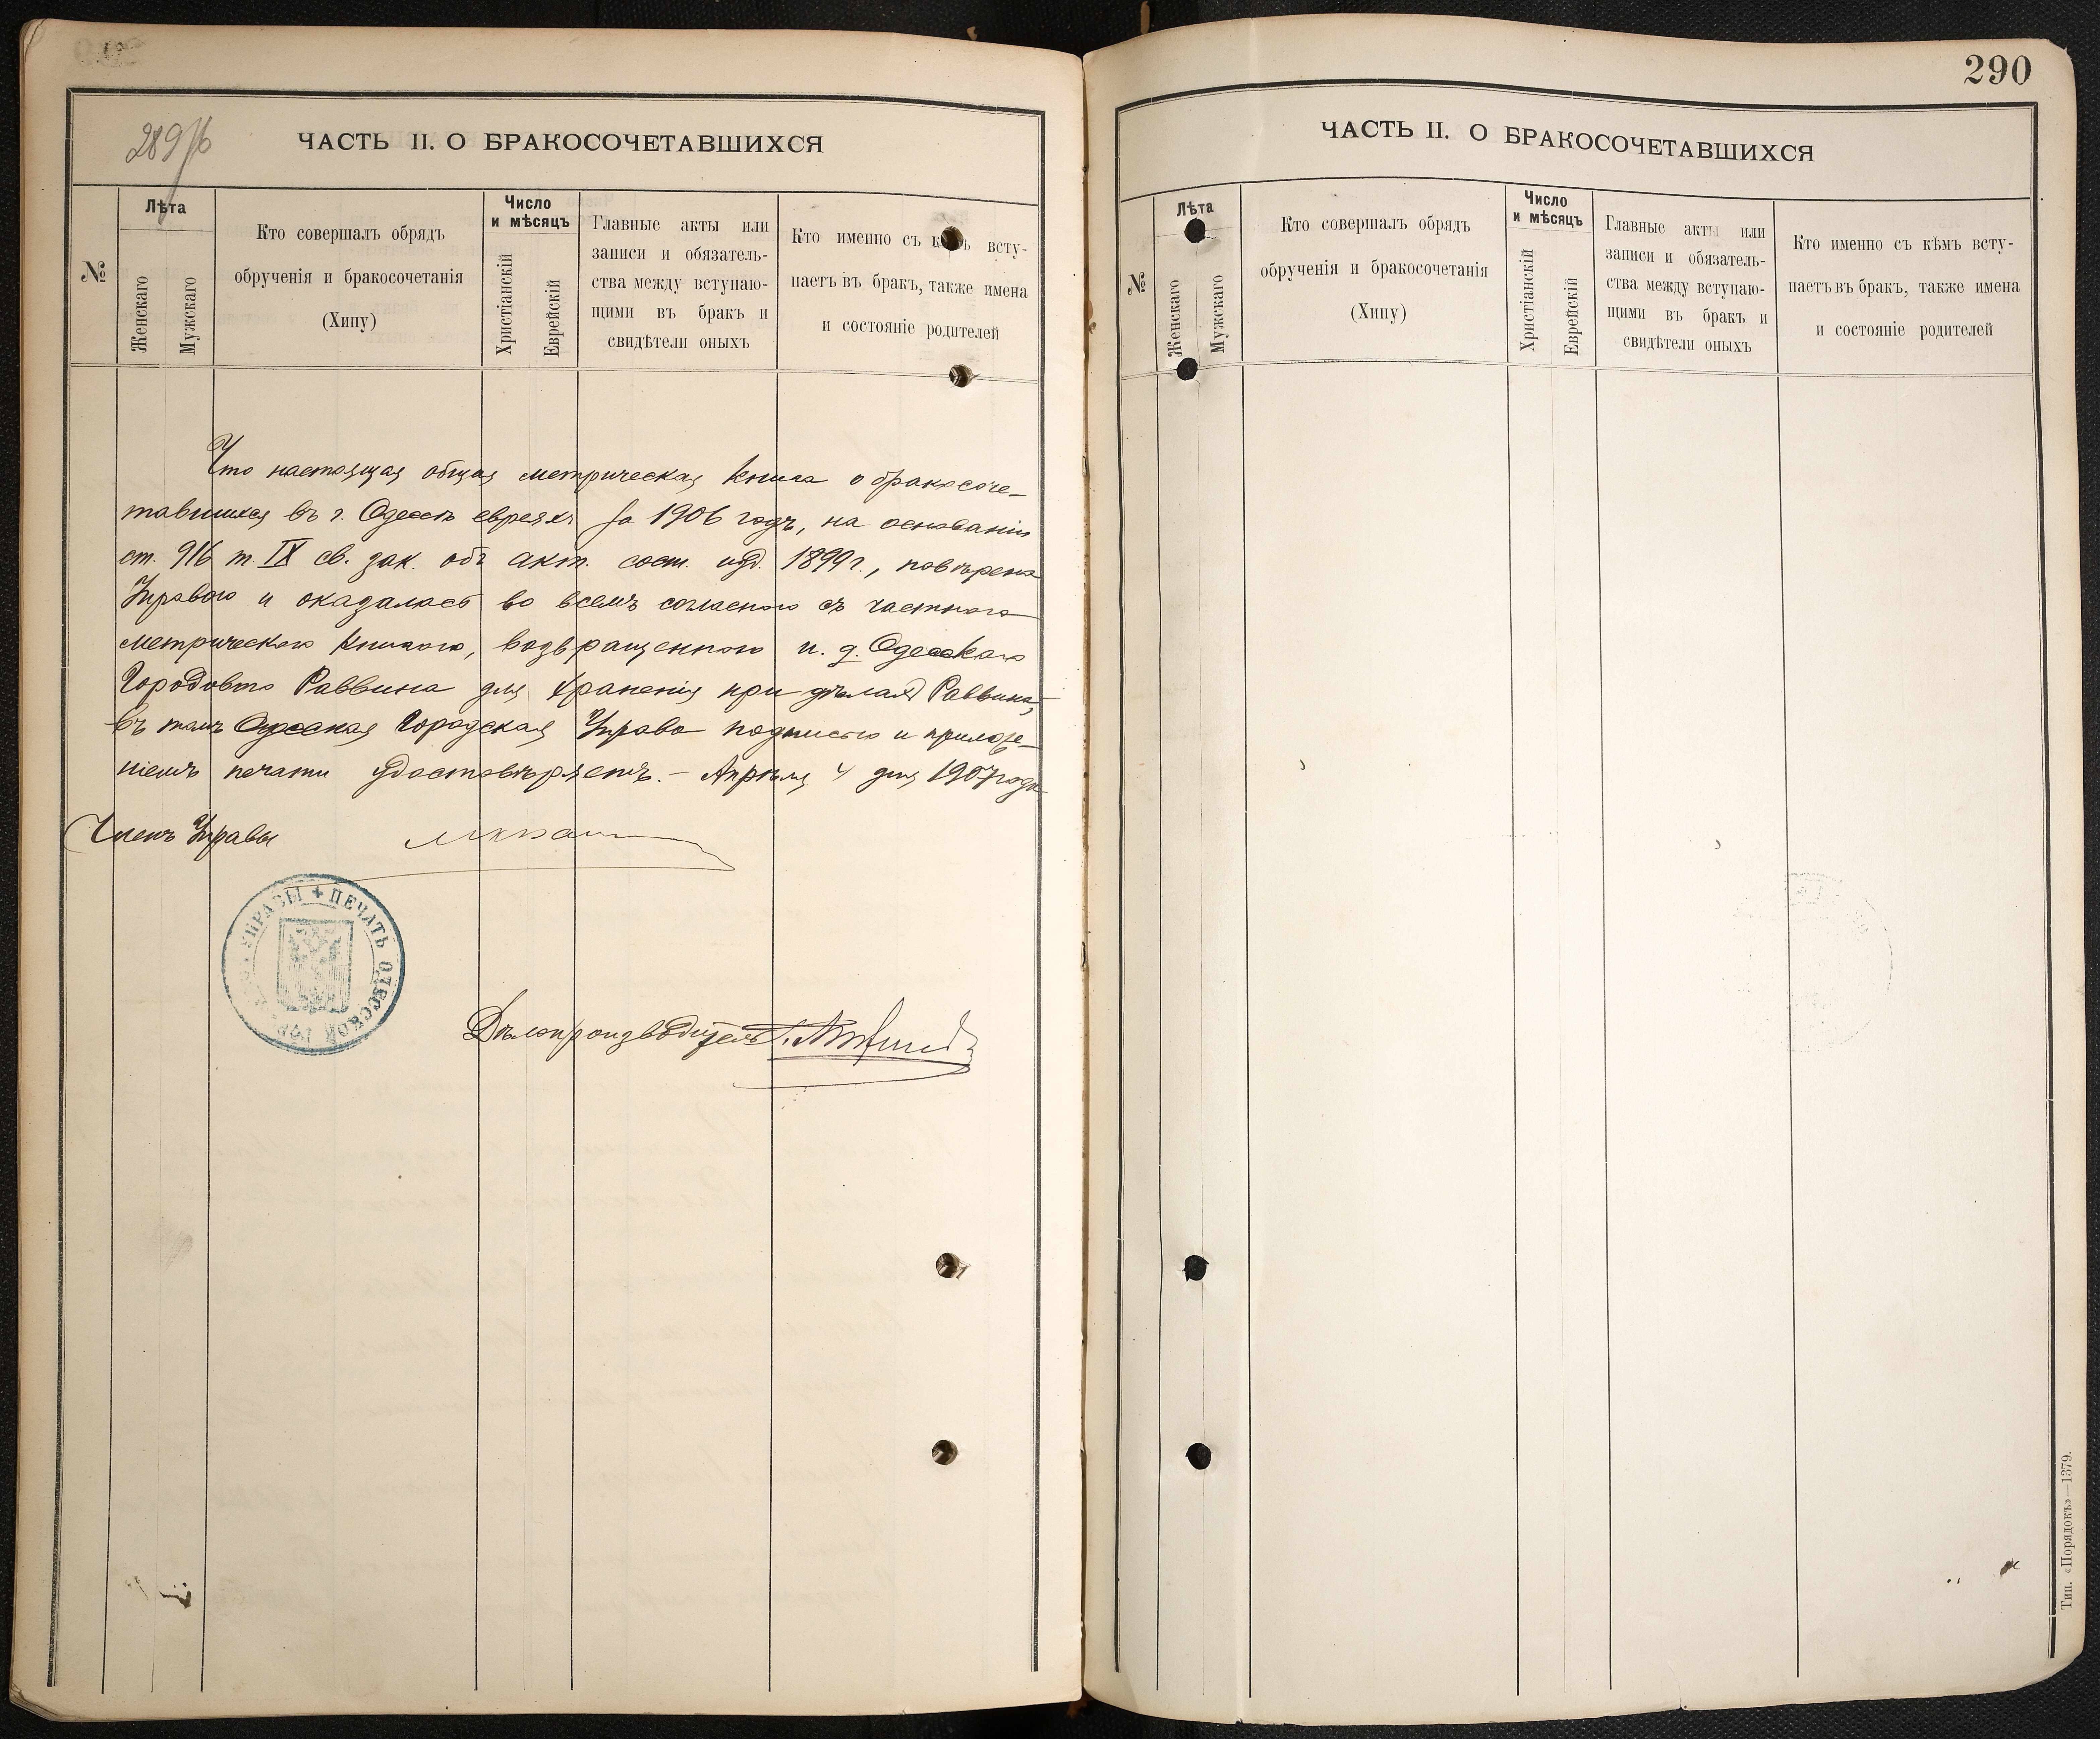 289/б
ЧАСТЬ II. О БРАКОСОЧЕТАВШИХСЯ
№
Лѣта
Женскаго
Мужскаго
Кто совершалъ обрядъ
обрученія и бракосочетанія
(Хипу)
Число
и мѣсяцъ
Христіанскій
Еврейскій
Главные акты или
записи и обязатель-
ства между вступаю-
щими въ бракъ и
свидѣтели оныхъ
Кто именно съ къмъ всту-
паетъ въ бракъ, также имена
и состояніе родителей
Что настоящая общая метрическая книга о бракосоче-
тавшихся въ г. Одессѣ евреяхъ за 1906 годъ, на основаніи
ст. 916 т. IX св. зак. объ акт. сост. изд. 1899 г., повѣрена
Управою и оказалась во всемъ согласною съ частною
метрическою книгою, возвращенною и. д. Одесскаго
Городового Раввина для храненія при дѣлахъ Раввина,
въ томъ Одесская Городская Управа подписью и приложе-
ніемъ печати удостовѣряетъ. – Апрѣля 4 дня 1907 года
Членъ Управы
ПЕЧАТЬ ОДЕССКОЙ ГОР. УПРАВЫ
Дѣлопроизводитель
290
ЧАСТЬ II. О БРАКОСОЧЕТАВШИХСЯ
№
Лѣта
Женскаго
Мужскаго
Кто совершалъ обрядъ
обрученія и бракосочетанія
(Хипу)
Число
и мѣсяцъ
Христіанскій
Еврейскій
Главные акты или
записи и обязатель-
ства между вступаю-
щими въ бракъ и
свидѣтели оныхъ
Кто именно съ кѣмъ всту-
паетъ въ бракъ, также имена
и состояніе родителей
Тип. «Порядокъ»—1379.